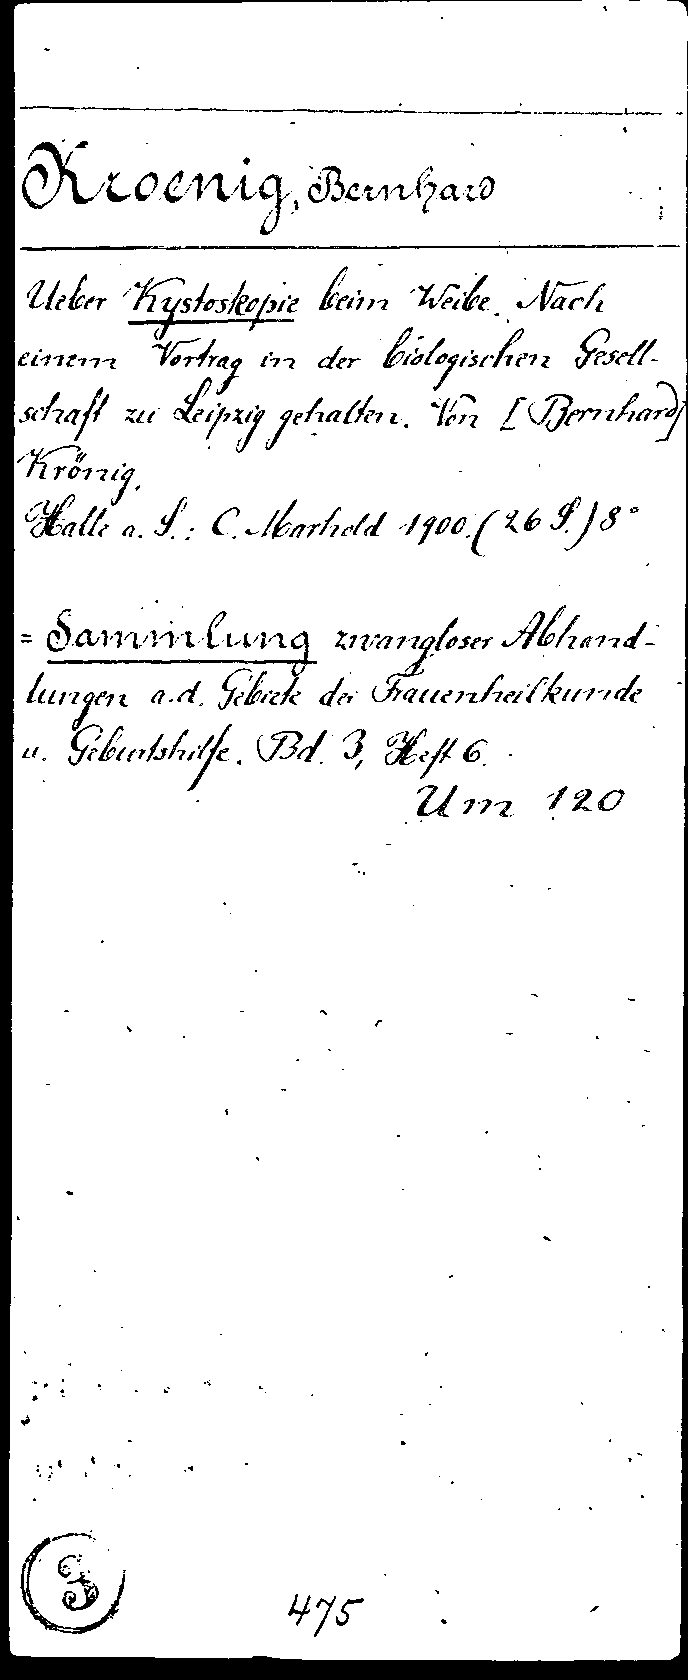 Kroenig, Bernhard
Ueber Kystoskopie beim Weibe. Nach
einem Vortrag in der biologischen Gesell-
schaft zu Leipzig gehalten. Von [Bernhard]
Krönig.
Halle a. S.: C. Marhold 1900. (26 S.) 8°
= Sammlung zwangloser Abhand-
lungen a. d. Gebiete der Frauenheilkunde
u. Geburtshilfe. Bd. 3, Heft 6.
Um 120
3
475